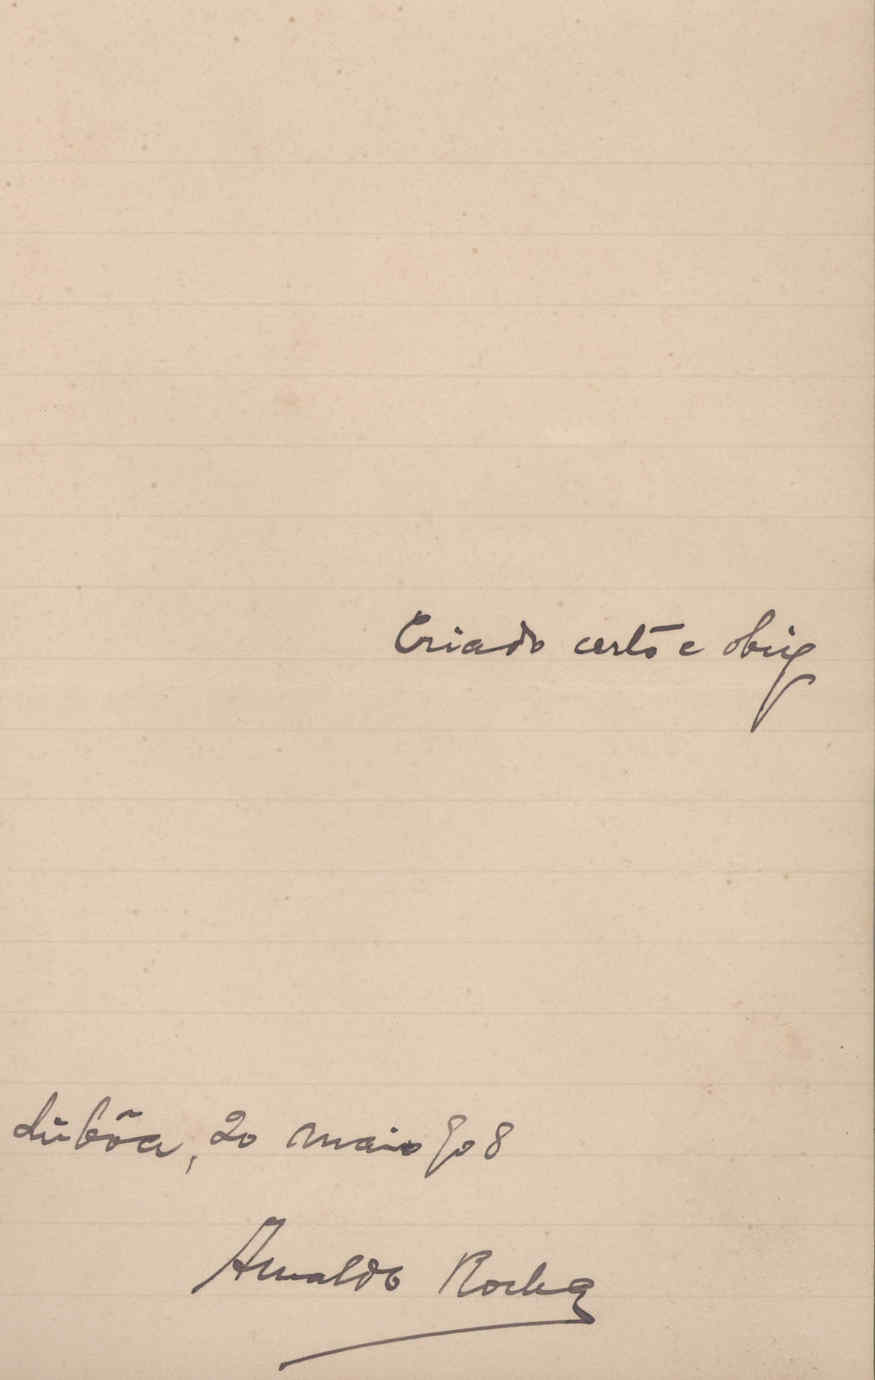 Criado certo e obrg
Lisbôa, 20 maio 908
Arnaldo Rocha